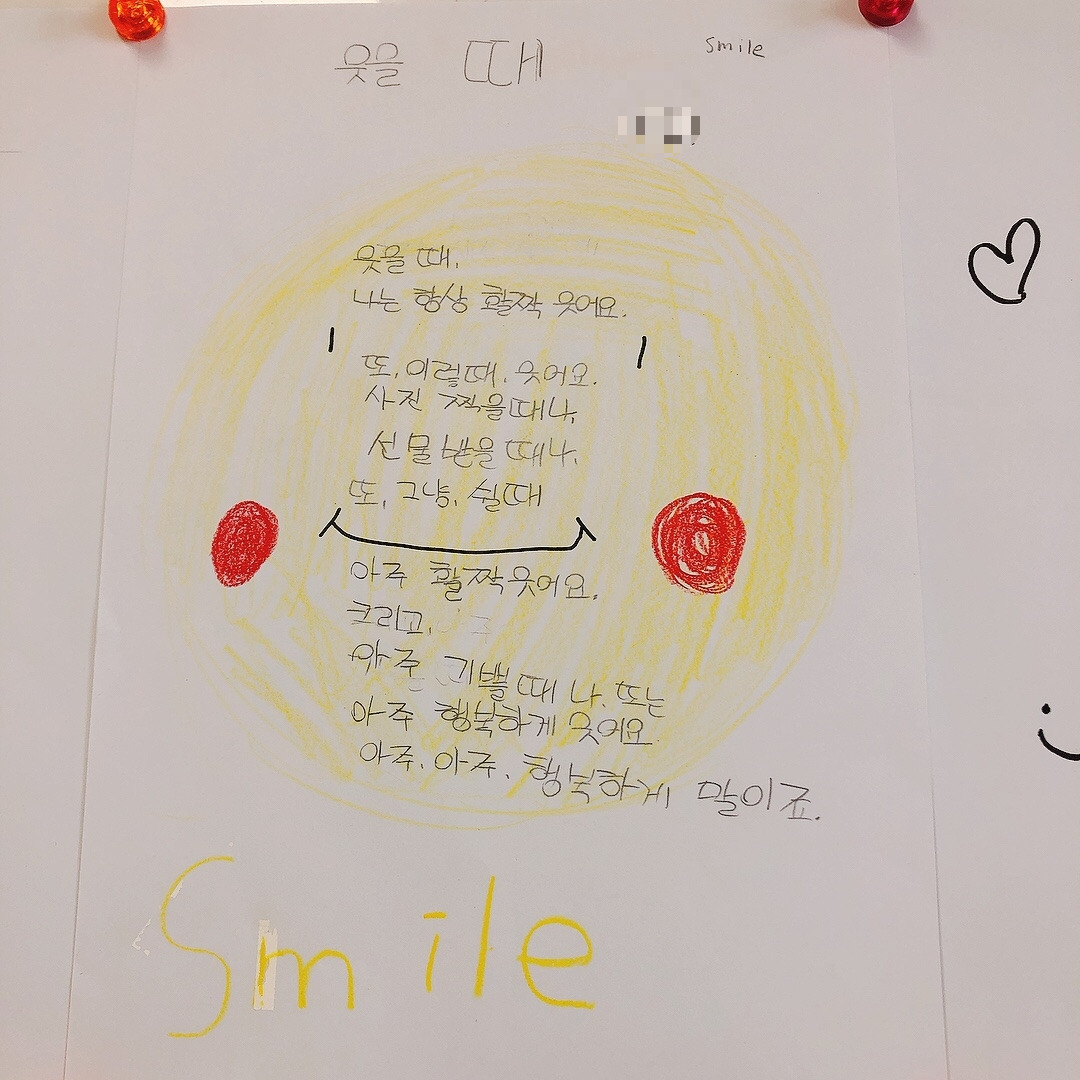 웃을 때
smile
웃을 때.
나는 항상 활짝 웃어요.
또, 이럴때, 웃어요.
사진 찍을때나,
선물 받을 때나,
또, 그냥, 쉴때
아주 활짝웃어요.
크리고,
아주 기쁠때 나, 또는
아주 행복하게 웃어요.
아주, 아주, 행복하게 말이죠.
Smile